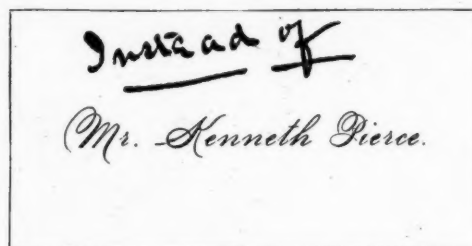 Instead of
Mr. Kenneth Pierce.